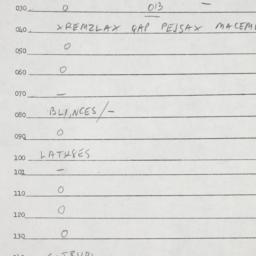 030 0 013 -
040 XREMZLAX GAP PEJSAX MACEM
050 0
060 0
070 -
080 BLI,NCES/-
090 0
100 LATHSES
101 -
110 0
120 0
130 0